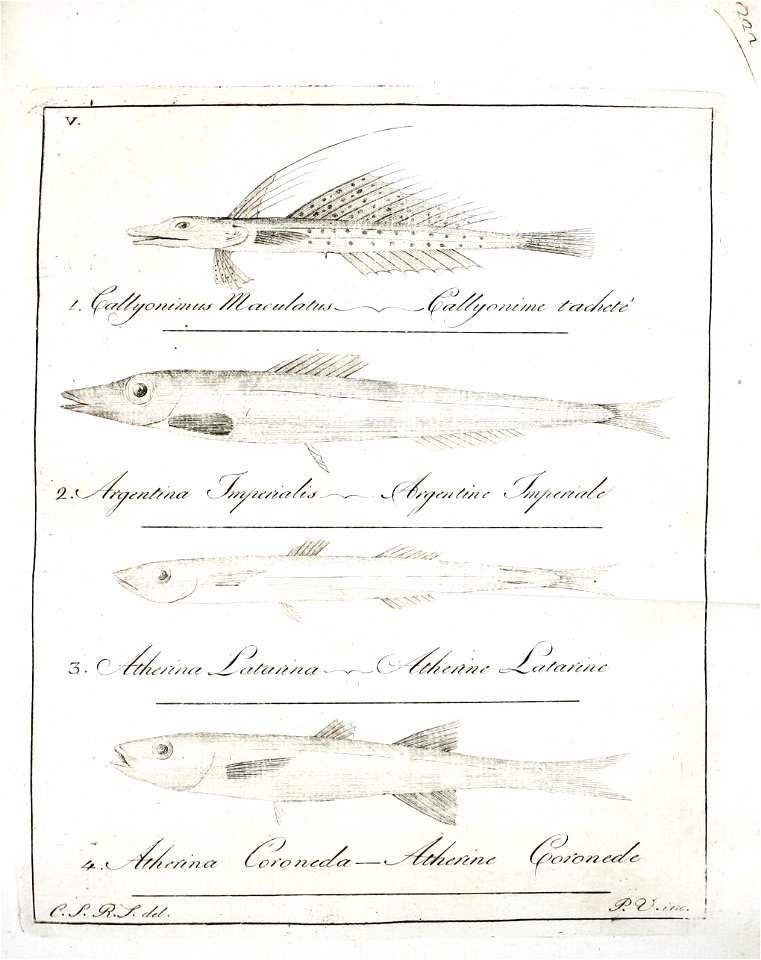 222
V.
1. Callyonimus Maculatus Callyonime tacheté
2. Argentina Imperialis Argentine Imperiale
3. Atherina Latarina Atherine Latarine
4. Atherina Coroneda — Atherine Coronede
C. S. R. S. del. P. V. inc.